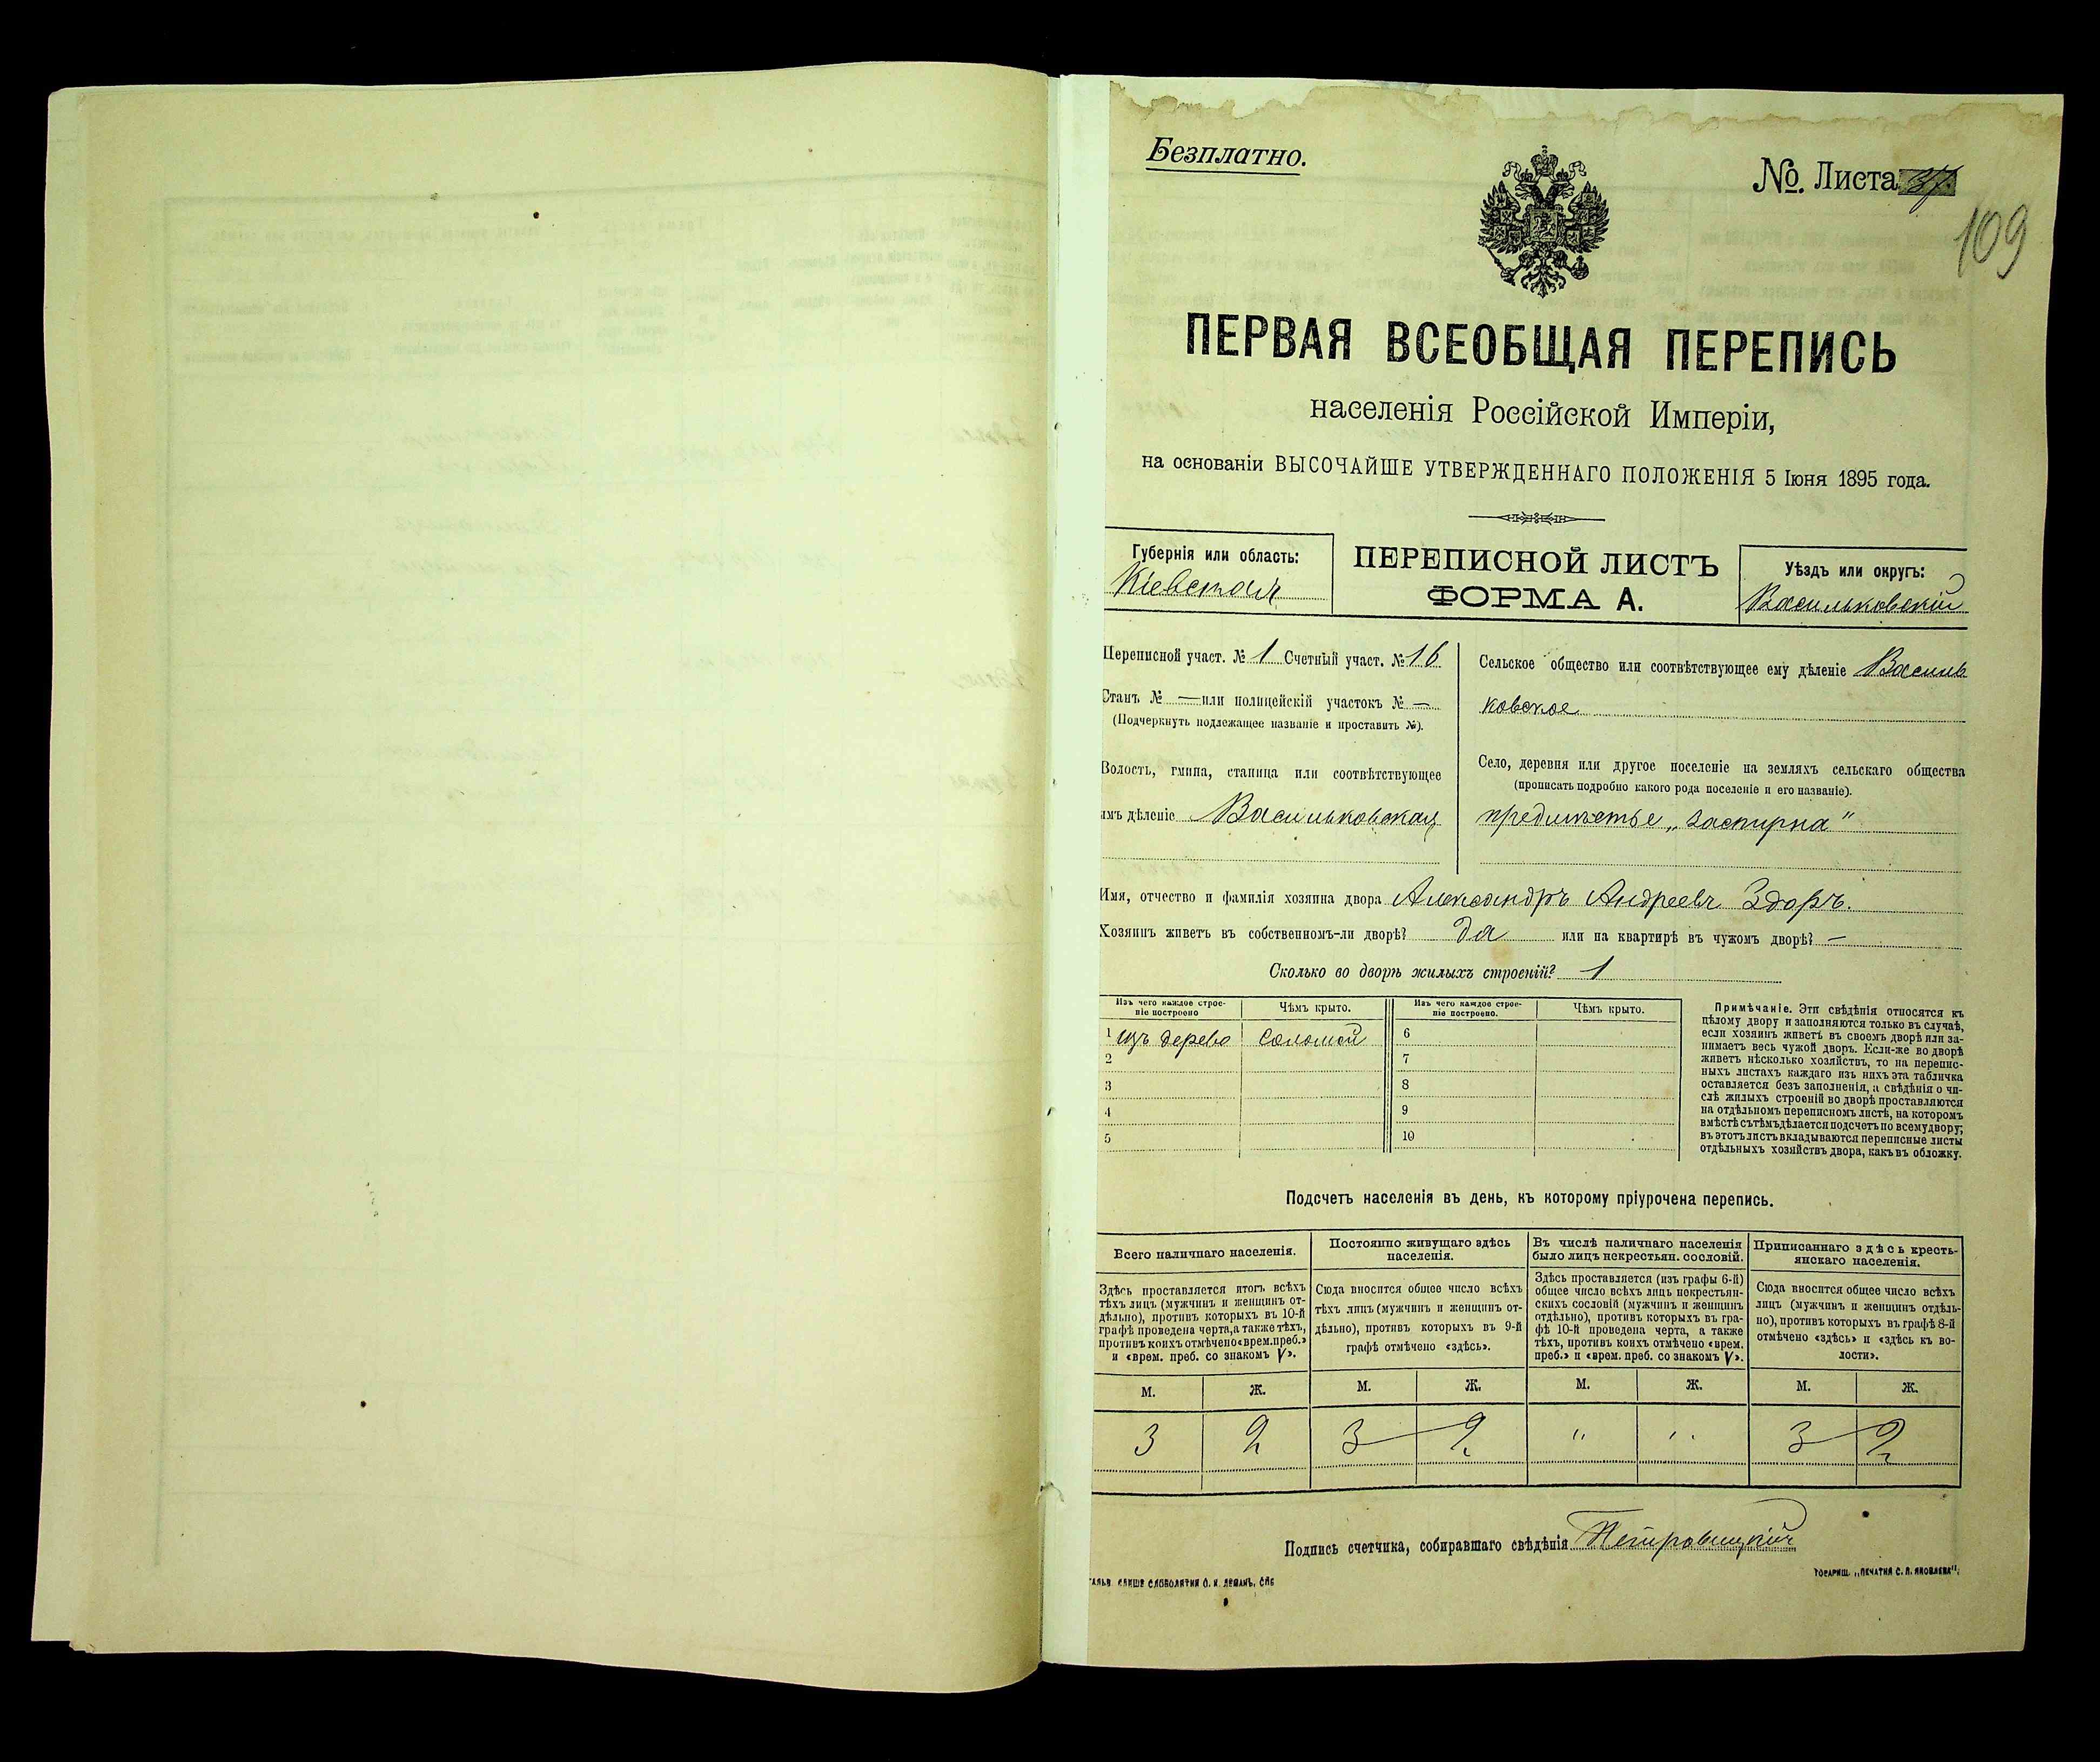 Безплатно.
№. Листа 37
109
ПЕРВАЯ ВСЕОБЩАЯ ПЕРЕПИСЬ
населенія Россійской Имперіи,
на основаніи ВЫСОЧАЙШЕ УТВЕРЖДЕННАГО ПОЛОЖЕНІЯ 5 Іюня 1895 года.
Губернія или область:
Кіевская
ПЕРЕПИСНОЙ ЛИСТЪ
ФОРМА А.
Уѣздъ или округъ:
Васильковскій
Переписной участ. № 1 Счетный участ. № 16
Станъ № — или полицейскій участокъ № —
(Подчеркнуть подлежащее названіе и проставить №).
Волость, гмина, станица или соотвѣтствующее
имъ дѣленіе Васильковская
Сельское общество или соотвѣтствующее ему дѣленіе Василь
ковское
Село, деревня или другое поселеніе на земляхъ сельскаго общества
(прописать подробно какого рода поселеніе и его названіе).
предмѣстье „Застугна"
Имя, отчество и фамилія хозяина двора Александръ Андреевъ Здоръ.
Хозяинъ живетъ въ собственномъ-ли дворѣ? да или на квартирѣ въ чужомъ дворѣ? —
Сколько во дворѣ жилыхъ строеній? 1
Изъ чего каждое строе-
ніе построено
Чѣмъ крыто.
Изъ чего каждое строе-
ніе построено.
Чѣмъ крыто.
1 изъ дерева соломой 6
2 7
3 8
4 9
5 10
Примѣчаніе. Эти свѣдѣнія относятся къ
цѣлому двору и заполняются только въ случаѣ,
если хозяинъ живетъ въ своемъ дворѣ или за-
нимаетъ весь чужой дворъ. Если-же во дворѣ
живетъ нѣсколько хозяйствъ, то на перепис-
ныхъ листахъ каждаго изъ нихъ эта табличка
оставляется безъ заполненія, а свѣдѣнія о чи-
слѣ жилыхъ строеній во дворѣ проставляются
на отдѣльномъ переписномъ листѣ, на которомъ
вмѣстѣ съ тѣмъ дѣлается подсчетъ по всему двору;
въ этотъ листъ вкладываются переписные листы
отдѣльныхъ хозяйствъ двора, какъ въ обложку.
Подсчетъ населенія въ день, къ которому пріурочена перепись.
Всего наличнаго населенія.
Здѣсь проставляется итогъ всѣхъ
тѣхъ лицъ (мужчинъ и женщинъ от-
дѣльно), противъ которыхъ въ 10-й
графѣ проведена черта, а также тѣхъ,
противъ коихъ отмѣчено «врем. преб.»
и «врем. преб. со знакомъ V».
Постоянно живущаго здѣсь
населенія.
Сюда вносится общее число всѣхъ
тѣхъ лицъ (мужчинъ и женщинъ от-
дѣльно), противъ которыхъ въ 9-й
графѣ отмѣчено «здѣсь».
Въ числѣ наличнаго населенія
было лицъ некрестьян. сословій.
Здѣсь проставляется (изъ графы 6-й)
общее число всѣхъ лицъ некрестьян-
скихъ сословій (мужчинъ и женщинъ
отдѣльно), противъ которыхъ въ гра-
фѣ 10-й проведена черта, а также
тѣхъ, противъ коихъ отмѣчено «врем.
преб.» и «врем. преб. со знакомъ V».
Приписаннаго здѣсь кресть-
янскаго населенія.
Сюда вносится общее число всѣхъ
лицъ (мужчинъ и женщинъ отдѣль-
но), противъ которыхъ въ графѣ 8-й
отмѣчено «здѣсь» и «здѣсь къ во-
лости».
М. Ж. М. Ж. М. Ж. М. Ж.
3 2 3 2 " " 3 2
Подпись счетчика, собиравшаго свѣдѣнія
ГАЛЬВ. КЛИШЕ СЛОВОЛИТНИ О. И. ЛЕМАНЪ, СПБ
ТОВАРИЩ. „ПЕЧАТНЯ С. П. ЯКОВЛЕВА".